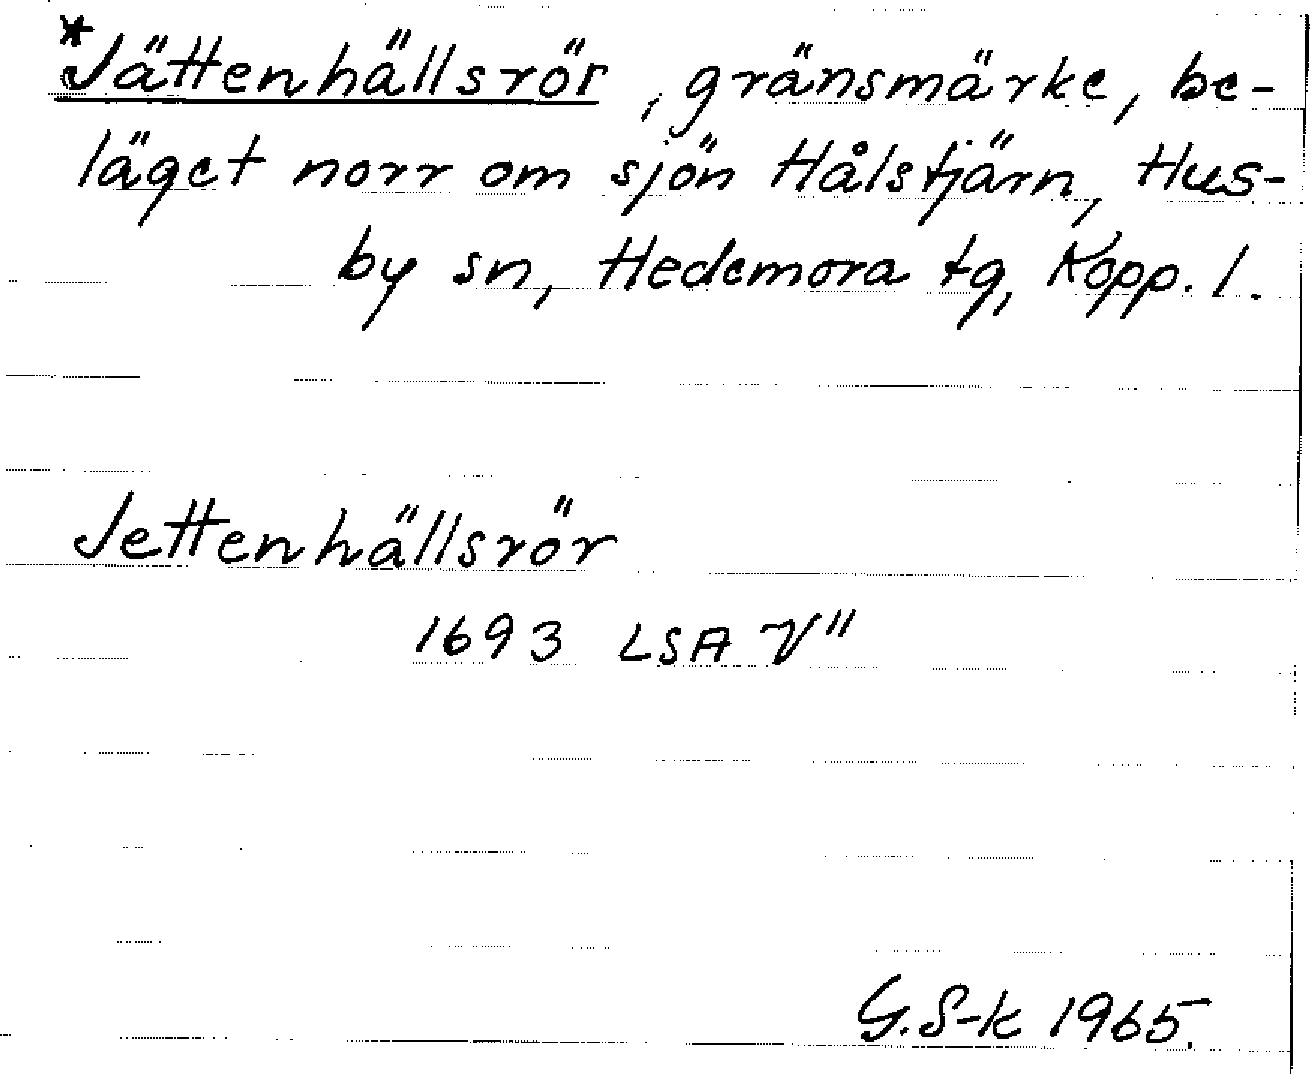 *Jättenhällsrör, gränsmärke, be-
läget norr om sjön Hålstjärn, Hus-
by sn, Hedemora tg, Kopp. l.
Jettenhällsrör
1693 LSA V"
G.S-k 1965.